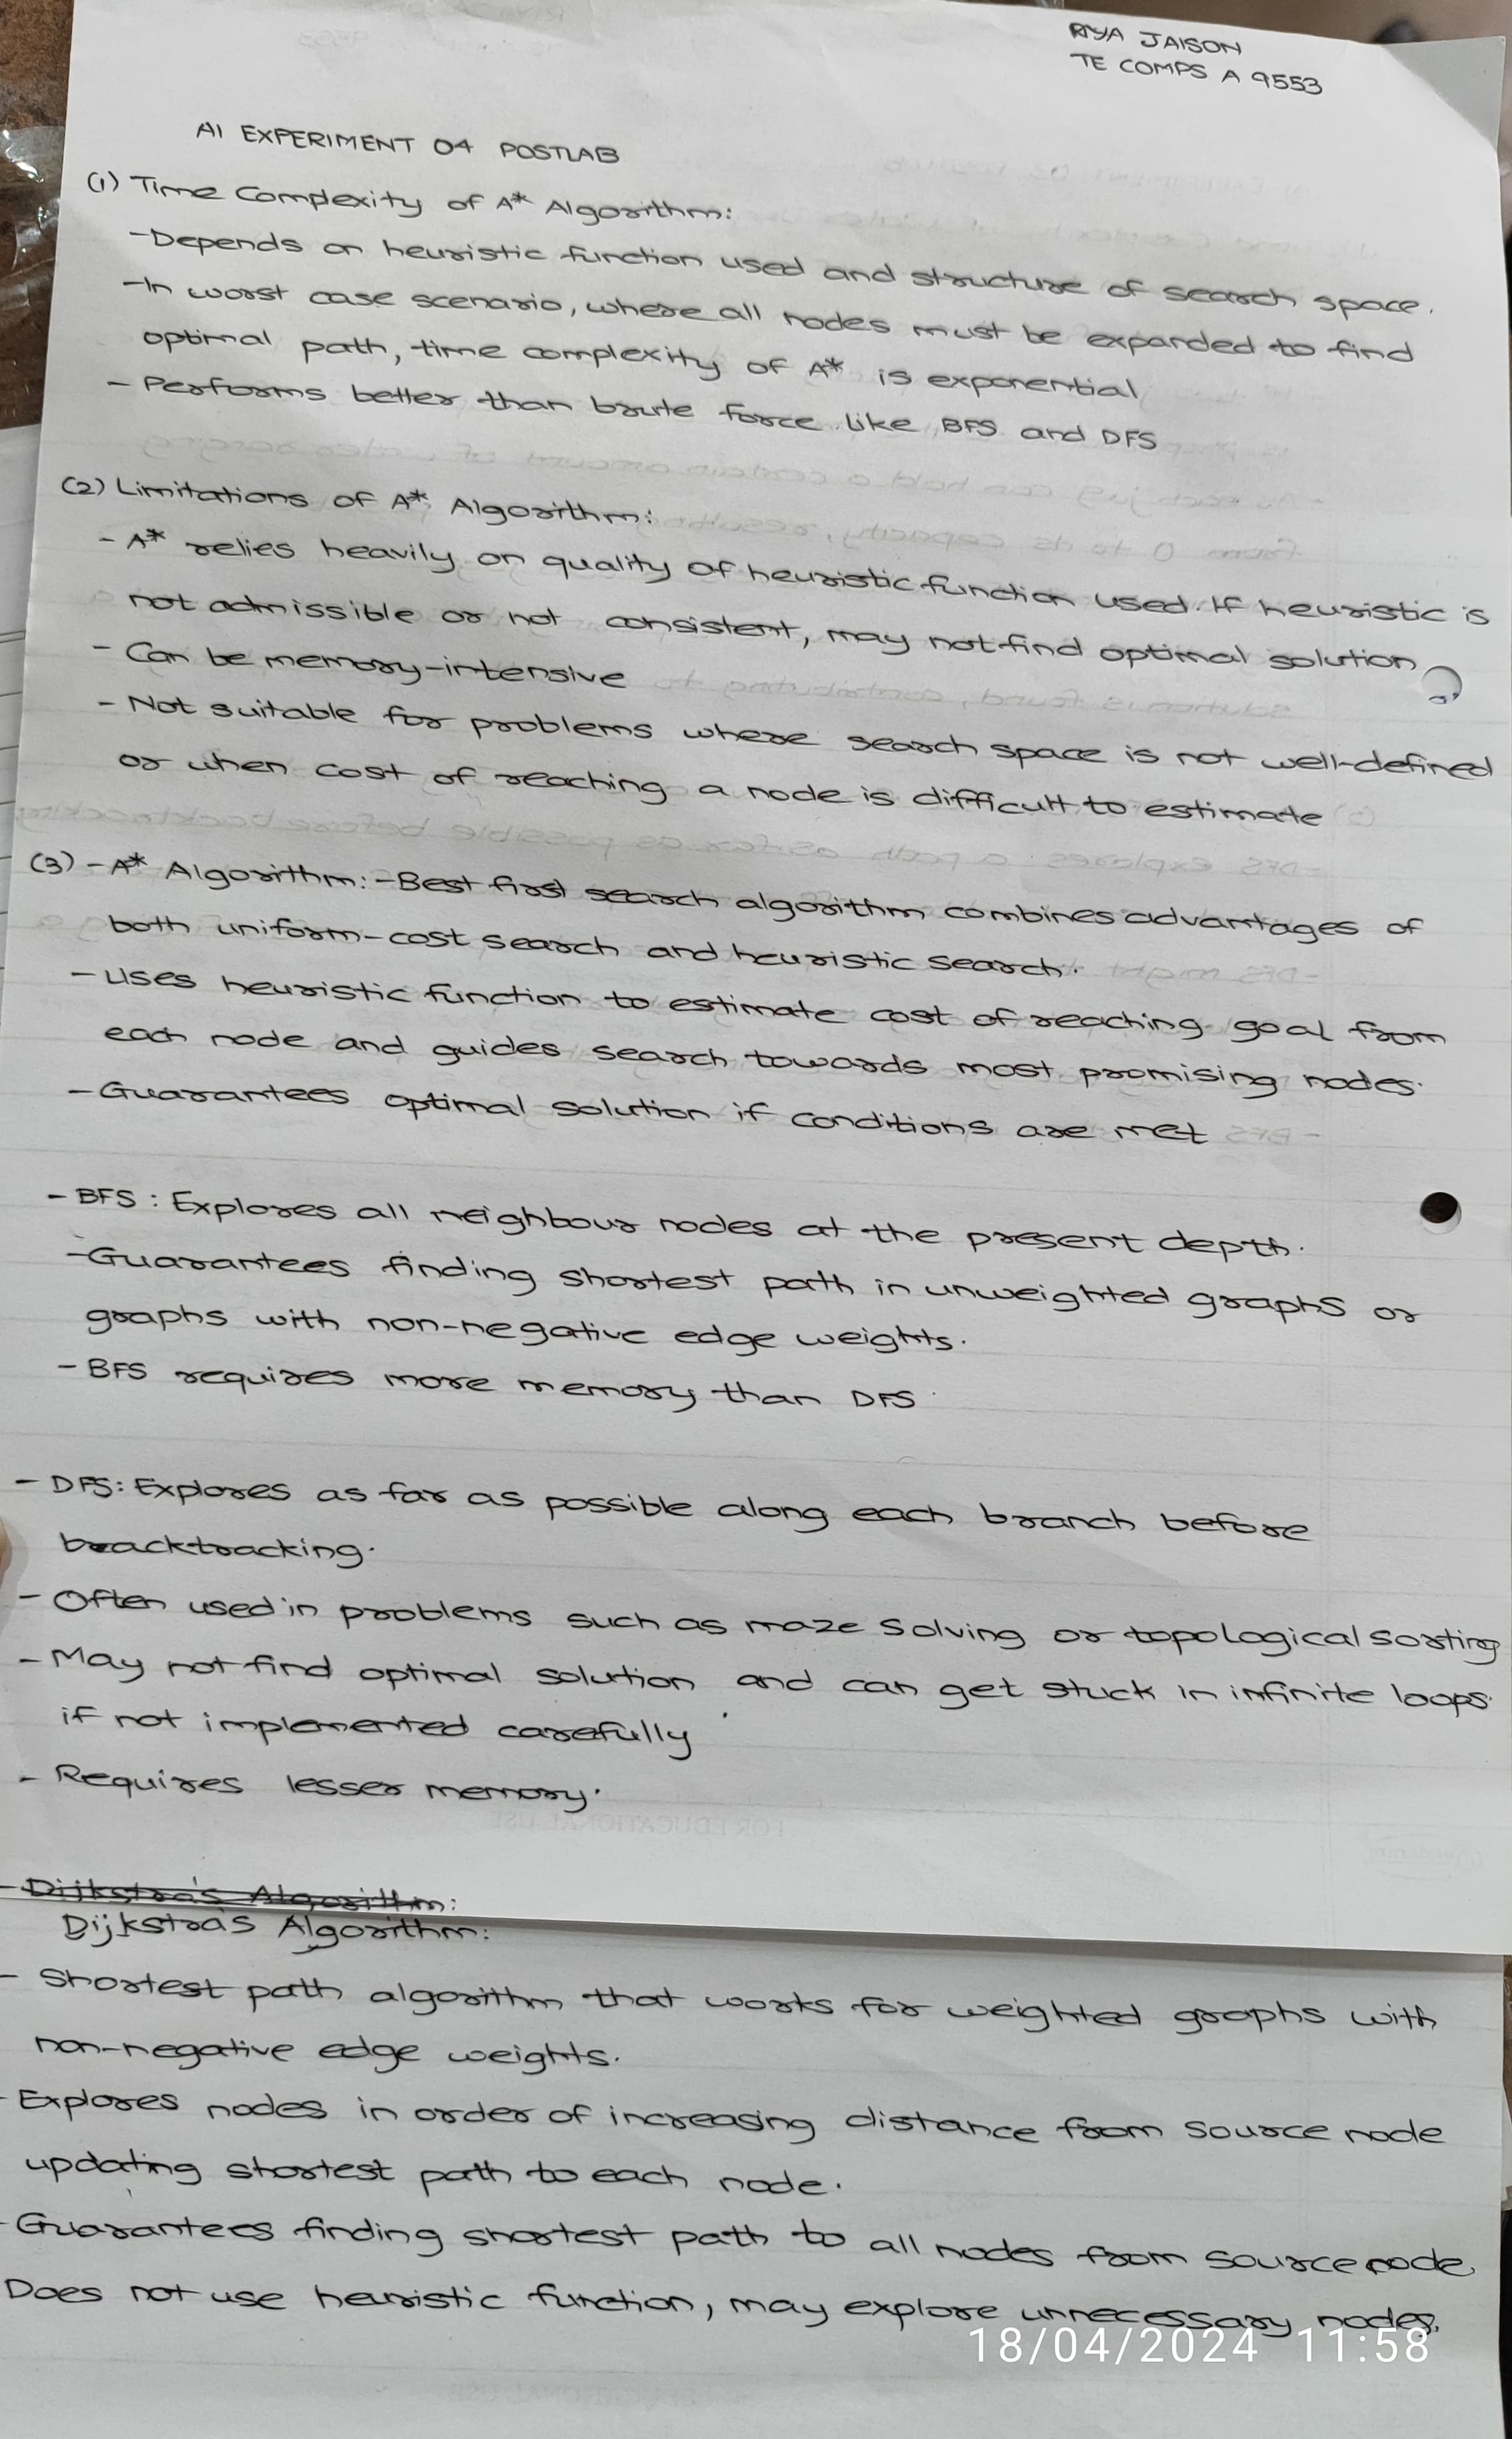 RIYA JAISON
TE COMPS A 9553
AI EXPERIMENT 04 POSTLAB
(1) Time Complexity of A* Algorithm:
-Depends on heuristic function used and structure of search space.
-In worst case scenario, where all nodes must be expanded to find
optimal path, time complexity of A* is exponential
- Performs better than brute force like BFS and DFS
(2) Limitations of A* Algorithm:
- A* relies heavily on quality of heuristic function used. If heuristic is
not admissible or not consistent, may not find optimal solution
- Can be memory-intensive
- Not suitable for problems where search space is not well-defined
or when cost of reaching a node is difficult to estimate
(3) - A* Algorithm: -Best first search algorithm combines advantages of
both uniform-cost search and heuristic search.
- Uses heuristic function to estimate cost of reaching goal from
each node and guides search towards most promising nodes.
- Guarantees optimal solution if conditions are met
- BFS : Explores all neighbour nodes at the present depth.
-Guarantees finding shortest path in unweighted graphs or
graphs with non-negative edge weights.
- BFS requires more memory than DFS
- DFS: Explores as far as possible along each branch before
backtracking.
- Often used in problems such as maze solving or topological sorting
- May not find optimal solution and can get stuck in infinite loops
if not implemented carefully
- Requires lesser memory.
- Dijkstra's Algorithm:
Dijkstra's Algorithm:
- Shortest path algorithm that works for weighted graphs with
non-negative edge weights.
- Explores nodes in order of increasing distance from source node
updating shortest path to each node.
- Guarantees finding shortest path to all nodes from source node.
Does not use heuristic function, may explore unnecessary nodes.
18/04/2024 11:58